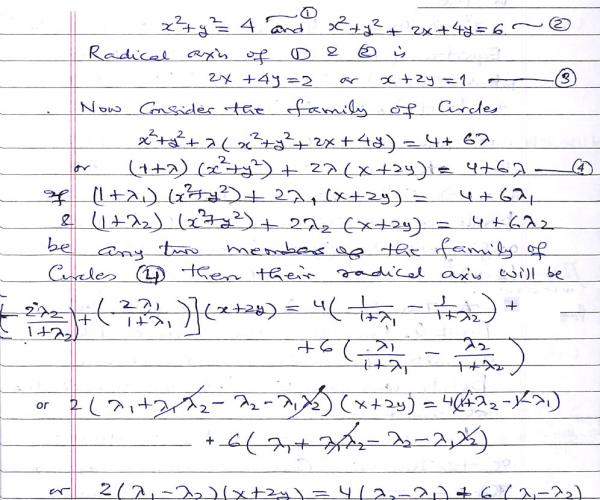 x²+y²= 4 ~① and x²+y²+ 2x+4y=6 ~②
Radical axis of ① & ② is
2x +4y=2 or x+2y=1 —③
Now Consider the family of Circles
x²+y²+λ(x²+y²+2x+4y)=4+6λ
or (1+λ)(x²+y²)+2λ(x+2y)=4+6λ —④
If (1+λ₁)(x²+y²)+2λ₁(x+2y)= 4+6λ₁
& (1+λ₂)(x²+y²)+2λ₂(x+2y)=4+6λ₂
be any two members of the family of
Circles ④ then their radical axis will be
[-2λ₂/(1+λ₂)+(2λ₁/(1+λ₁))](x+2y)=4(1/(1+λ₁) - 1/(1+λ₂))+
+6(λ₁/(1+λ₁) - λ₂/(1+λ₂))
or 2(λ₁+λ₁λ₂-λ₂-λ₁λ₂)(x+2y)=4(1+λ₂-1-λ₁)
+6(λ₁+λ₁λ₂-λ₂-λ₁λ₂)
or 2(λ₁-λ₂)(x+2y)=4(λ₂-λ₁)+6(λ₁-λ₂)